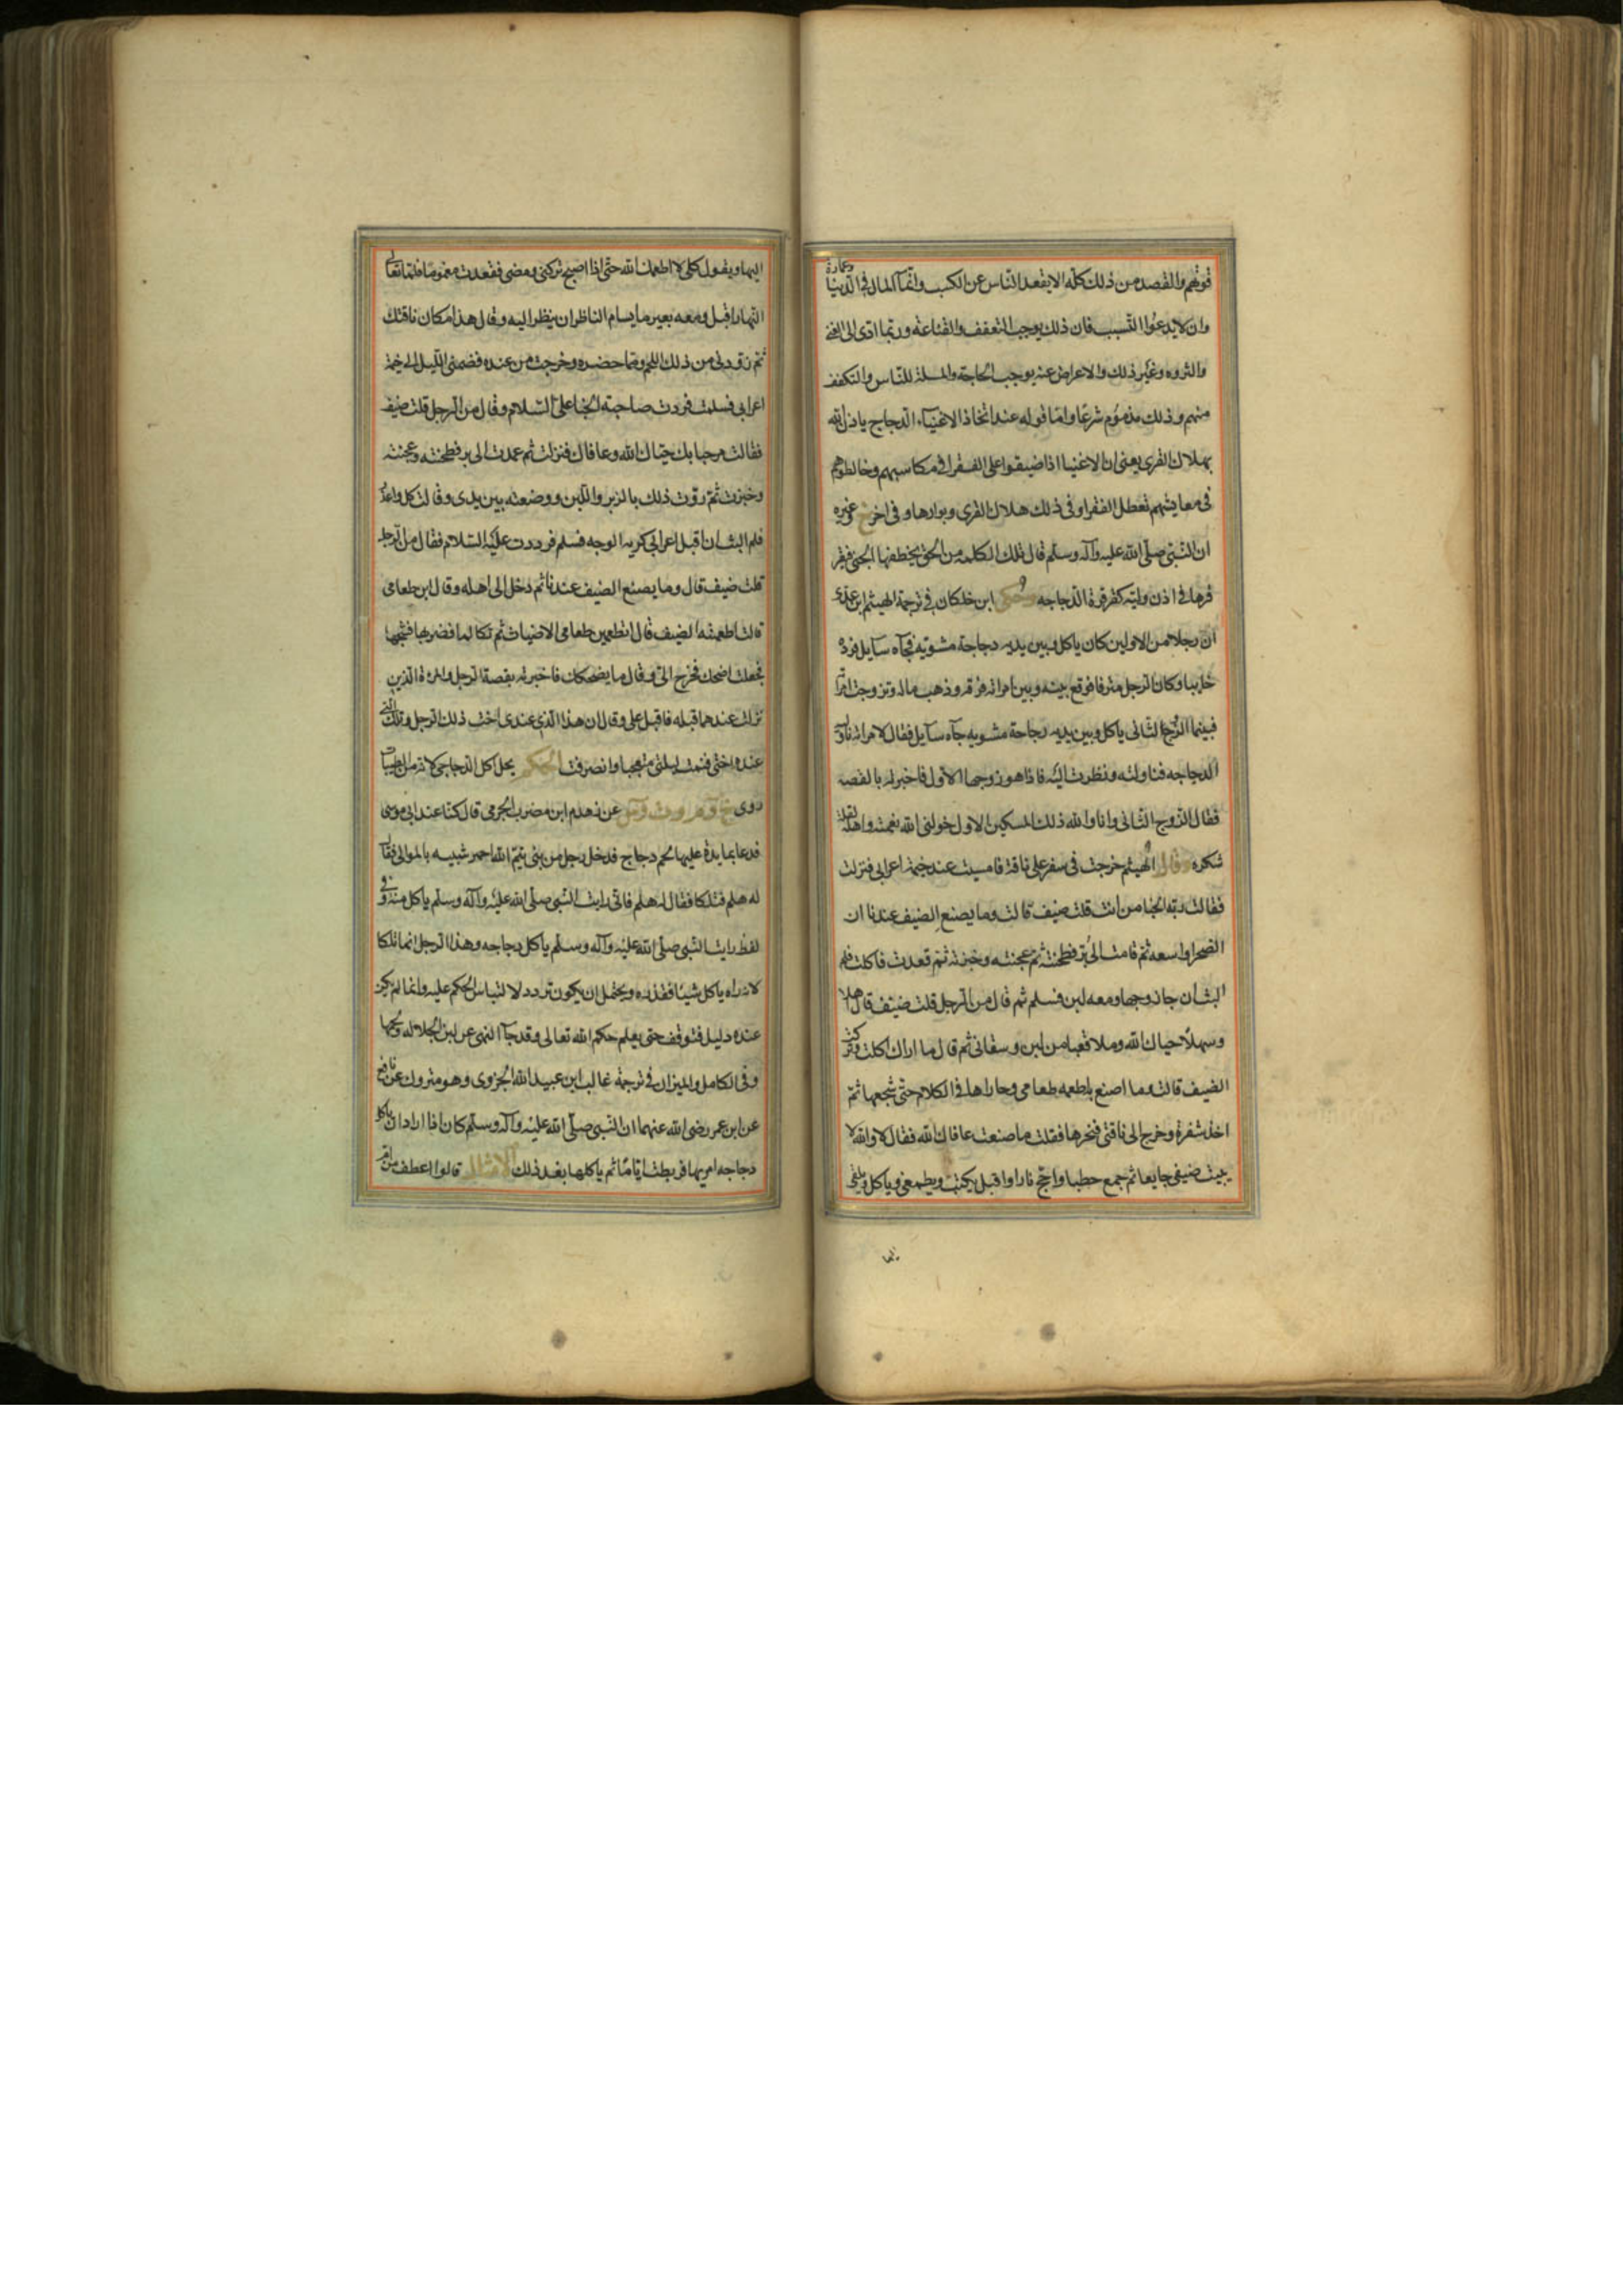 قوتهم والقصد من ذلك كله الا يقعد الناس عن الكسب وانماء المال فى الدنيا وعمارة
وان لا يدعوا التسبب فان ذلك يوجب التعفف والقناعة وربما ادى الى الغنى
والثروه وغير ذلك والاعراض عنه يوجب الحاجة والمسلة للناس والتكفف
منهم وذلك مذموم شرعا واما قوله عند اتخاذ الاغنياء الدجاج ياذن الله
بهلاك القرى يعنى ان الاغنيا اذا ضيقوا على الفقرا فى مكاسبهم وخالطوهم
فى معايشهم تعطل الفقرا وفى ذلك هلاك القرى وبوارها وفى اخر خ وغيره
ان النبى صلى الله عليه وآله وسلم قال تلك الكلمه من الحق يخطفها الجنى فيقر
قرها فى اذن وليه كقرقرة الدجاجه وحكى ابن خلكان فى ترجمة الهيثم ابن عدى
ان رجلا من الاولين كان ياكل وبين يديه دجاجة مشويه فجآه سآيل فرده
خايبا وكان الرجل مترفا فوقع بينه وبين امراته فرقه وذهب ماله وتزوجت امراته
فبينما الزوج الثانى ياكل وبين يديه دجاجة مشويه جآه سآيل فقال لامراته ناوليه
الدجاجه فناولته ونظرت اليه فاذا هو زوجها الاول فاخبرته بالقصه
فقال الزوج الثانى وانا والله ذلك المسكين الاول خولنى الله نعمته واهله لقلة
شكره وقال الهيثم خرجت فى سفر على ناقة فامسيت عند خيمة اعرابى فنزلت
فقالت ربة الخبا من انت قلت ضيف قالت وما يصنع الضيف عندنا ان
الصحرا واسعه ثم قامت الى بر فطحنته ثم عجنته وخبزته ثم قعدت فاكلت فلم
البث ان جا زوجها ومعه لبن فسلم ثم قال من الرجل قلت ضيف قال اهلا
وسهلا حياك الله وملا قعبا من لبن وسقانى ثم قال ما اراك اكلت
الضيف قالت وما اصنع به اطعمه طعامى وجاراها فى الكلام حتى شجها ثم
اخذ شفرة وخرج الى ناقتى فنحرها فقلت ما صنعت عافاك الله فقال لا والله لا
يبيت ضيفى جايعا ثم جمع حطبا واجج نارا واقبل يكبب ويطعمنى وياكل ويلقى
اليها
اليها ويقول كلى لا اطعمك الله حتى اذا اصبح تركنى ومضى فقعدت مغموما فلما تعالى
النهار اقبل ومعه بعير ما يسام الناظر ان ينظر اليه وقال هذا مكان ناقتك
ثم زودنى من ذلك اللحم ومما حضره وخرجت من عنده فضمنى الليل الى خيمة
اعرابى فسلمت فردت صاحبة الخبا على السلام وقال من الرجل قلت ضيف
فقالت مرحبا بك حياك الله وعافاك فنزلت ثم عمدت الى بر فطحنته وعجنته
وخبزت ثم روت ذلك بالزبد واللبن ووضعته بين يدى وقالت كل واعذر
فلم البث ان اقبل اعرابى كريه الوجه فسلم فرددت عليه السلام فقال من الرجل
قلت ضيف قال وما يصنع الضيف عندنا ثم دخل الى اهله وقال اين طعامى
قالت اطعمته الضيف قال اتطعمين طعامى الاضياف ثم تكالما فضربها فشجها
فجعلت اضحك فخرج الى وقال ما يضحكك فاخبرته بقصة الرجل والمرة الذين
نزلت عندهما قبله فاقبل على وقال ان هذا الذى عندى اخت ذلك الرجل وتلك التى
عنده اختى فنمت ليلتى متعجبا وانصرفت الحكم يحل اكل الدجاج لانه من الطيبات
روى خ وم وت ون عن زهدم ابن مضرب الجرمى قال كنا عند ابى موسى
فدعا بمايدة عليها لحم دجاج فدخل رجل من بنى تيم الله احمر شبيه بالموالى فقال
له هلم فتلكا فقال له هلم فانى رايت النبى صلى الله عليه وآله وسلم ياكل منه وفى
لفظ رايت النبى صلى الله عليه وآله وسلم ياكل دجاجه وهذا الرجل انما تلكا
لانه راه ياكل شيئا فقذره ويحتمل ان يكون تردد لالتباس الحكم عليه وانه لم يكن
عنده دليل فتوقف حتى يعلم حكم الله تعالى وقد جآ النهى عن لبن الجلاله ولحمها
وفى الكامل والميزان فى ترجمة غالب ابن عبيد الله الجزرى وهو متروك عن نافع
عن ابن عمر رضى الله عنهما ان النبى صلى الله عليه وآله وسلم كان اذا اراد ان ياكل
دجاجه امر بها فربطت اياما ثم ياكلها بعد ذلك الامثال قالوا اعطف من ام